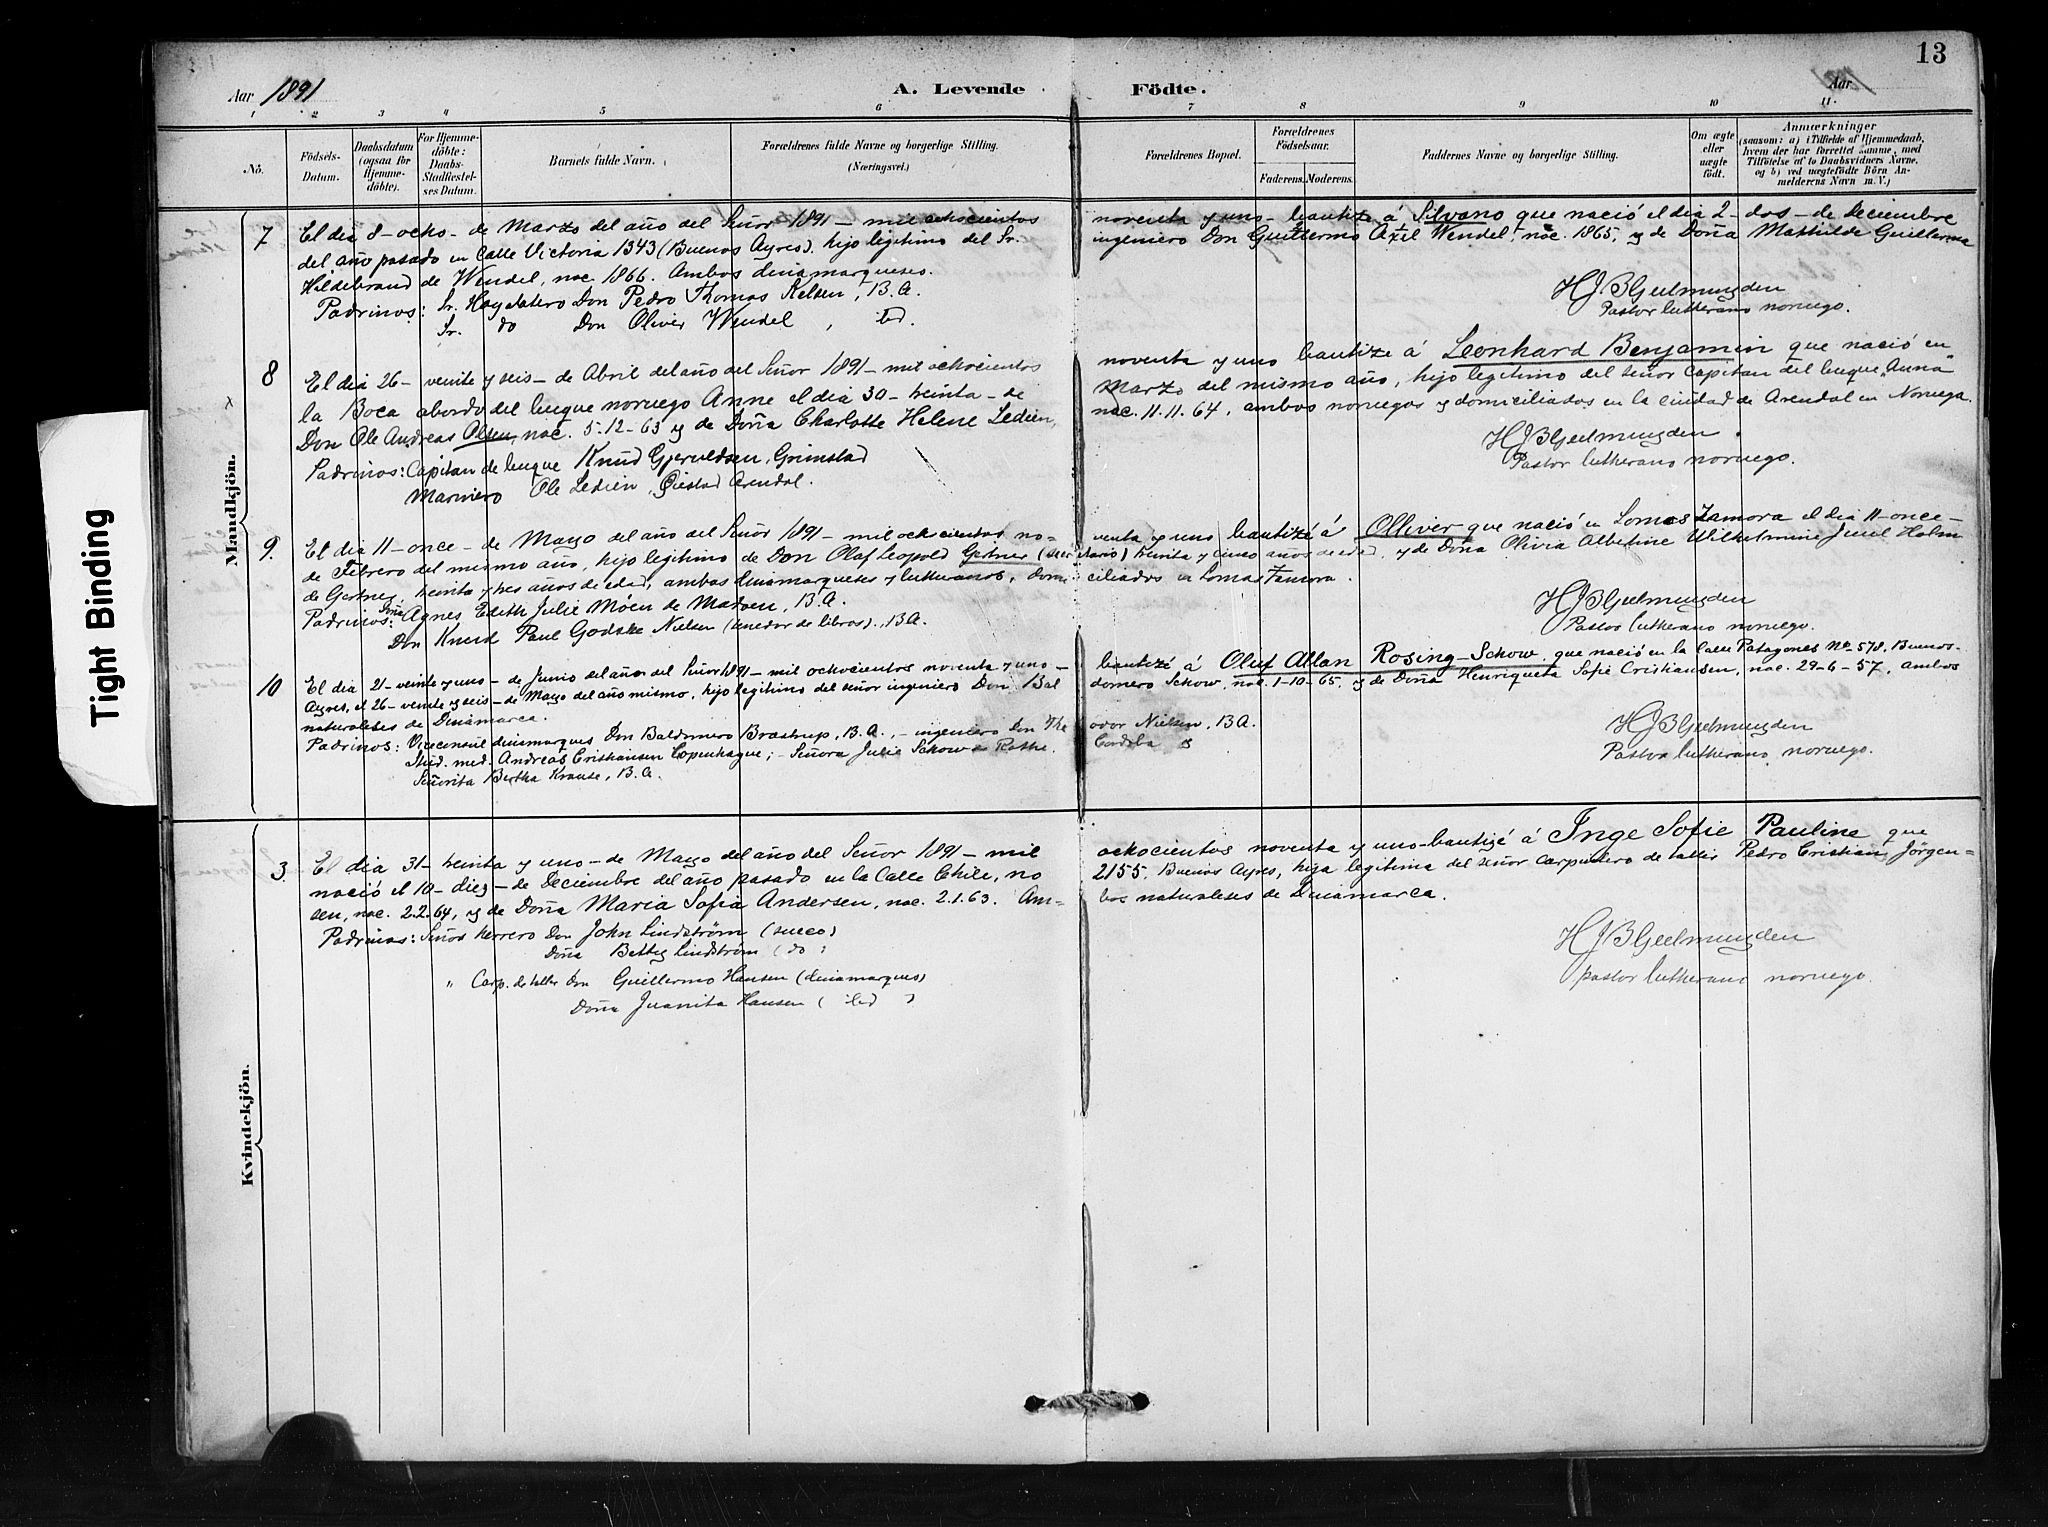 13
Aar 1891
A. Levende Födte.
Aar
1 2 3 4 5 6 7 8 9 10 11.
No.
Födsels-Datum.
Daabsdatum (ogsaa for Hjemme-döbte).
For Hjemme-döbte: Daabs-Stadfæstel-ses Datum.
Barnets fulde Navn.
Forældrenes fulde Navne og borgerlige Stilling. (Næringsvei.)
Forældrenes Bopæl.
Forældrenes Födselsaar.
Faderens. Moderens.
Faddernes Navne og borgerlige Stilling.
Om ægte eller uægte födt.
Anmærkninger
(saasom: a) i Tilfælde af Hjemmedaab, hvem der har forrettet samme, med Tilföielse af to Daabsvidners Navne, og b) ved uægtefödte Börn An-melderens Navn m. V.)
Tight Binding
Mandkjön.
7 El dia 8 - ocho - de Marzo del año del Señor 1891 - mil ochocientos noventa y uno - bautizé á Silvano que nació el dia 2 - dos - de Deciembre
del año pasado en Calle Victoria 1343 (Buenos Ayres). hijo legitimo del Sr. ingeniero Don Guillermo Axel Wendel, nac. 1865, y de Doña Mathilde Guillerma
Hildebrand de Wendel, nac. 1866. Ambos dinamarqueses.
Padrinos: Sr. Don Pedro Thomas Kelsen, B.A.
Sr. do Don Oliver Wendel, id.
HJBGeelmuyden
Pastor lutherano noruego.
8 El dia 26 - veinte y seis - de Abril del año del Señor 1891 - mil ochocientos noventa y uno bautize á Leonhard Benjamin que nació en
x
la Boca abordo del buque noruego Anne el dia 30 - treinta - de Marzo del mismo año, hijo legitimo del señor Capitan del buque "Anna"
Don Ole Andreas Olsen, nac. 5-12-63 y de Doña Charlotte Helene Ledien, nac. 11.11.64, ambos noruegos y domiciliados en la ciudad de Arendal en Noruega.
Padrinos: Capitan de buque Knud Gjeruldsen, Grimstad
Marinero Ole Ledien, Öiestad Arendal.
HJBGeelmuyden
Pastor lutherano noruego.
9. El dia 11 - once - de Mayo del año del Señor 1891 - mil ochocientos noventa y uno bautizé á Olliver que nació en Lomas Zamora el dia 11 - once -
de Febrero del mismo año, hijo legitimo de Don Olaf Leopold Gertner treinta y cinco años de edad, y de Doña Olivia Albetine Wilhelmine Juul Holm
de Gertner, treinta y tres años de edad, ambos dinamarqueses y lutheranos, domiciliados en Lomas Zamora.
Padrinos: Doña Agnes Edith Julie Möen de Madsen, B.A.
Don Knud Paul Godske Nielsen (tenedor de libros). B.A.
HJBGeelmuyden
Pastor lutherano noruego.
10 El dia 21 - veinte y uno - de Junio del año del Señor 1891 - mil ochocientos noventa y uno - bautizé á Oluf Allan Rosing-Schow que nació en la Calle Patagones No 578, Buenos-
Ayres, el 26 - veinte y seis - de Mayo del año mismo, hijo legitimo del señor ingeniero Don Baldomero Schow, nac. 1-10-65, y de Doña Henriqueta Sofie Cristiansen, nac. 29-6-57, ambos
naturaleses de Dinamarca.
Padrinos: Viceconsul dinamarques Don Baldomero Brostrup, B.A., - ingeniero Don Theodor Nielsen, B.A.
Stud. med. Andreas Cristiansen Copenhague; - Señora Julie Schow Rothe. Cordoba
Señorita Bertha Krause, B.A.
HJBGeelmuyden
Pastor lutherano noruego.
Kvindekjön.
3. El dia 31 - treinta y uno - de Mayo del año del Señor 1891 - mil ochocientos noventa y uno - bautizé á Inge Sofie Pauline que
nació el 10 - diez - de Deciembre del año pasado en la Calle Chile, no 2155. Buenos Ayres, hija legitima del señor carpintero de taller Pedro Cristian Jörgen-
sen, nac. 2.2.64, y de Doña Maria Sofia Andersen, nac. 2.1.63. Ambos naturaleses de Dinamarca.
Padrinos: Señor herrero Don John Lindström (sueco)
Doña Betty Lindström (do)
" Carp. de taller Don Guillermo Hansen (dinamarques)
Doña Juanita Hansen (id)
HJBGeelmuyden
pastor lutherano noruego.